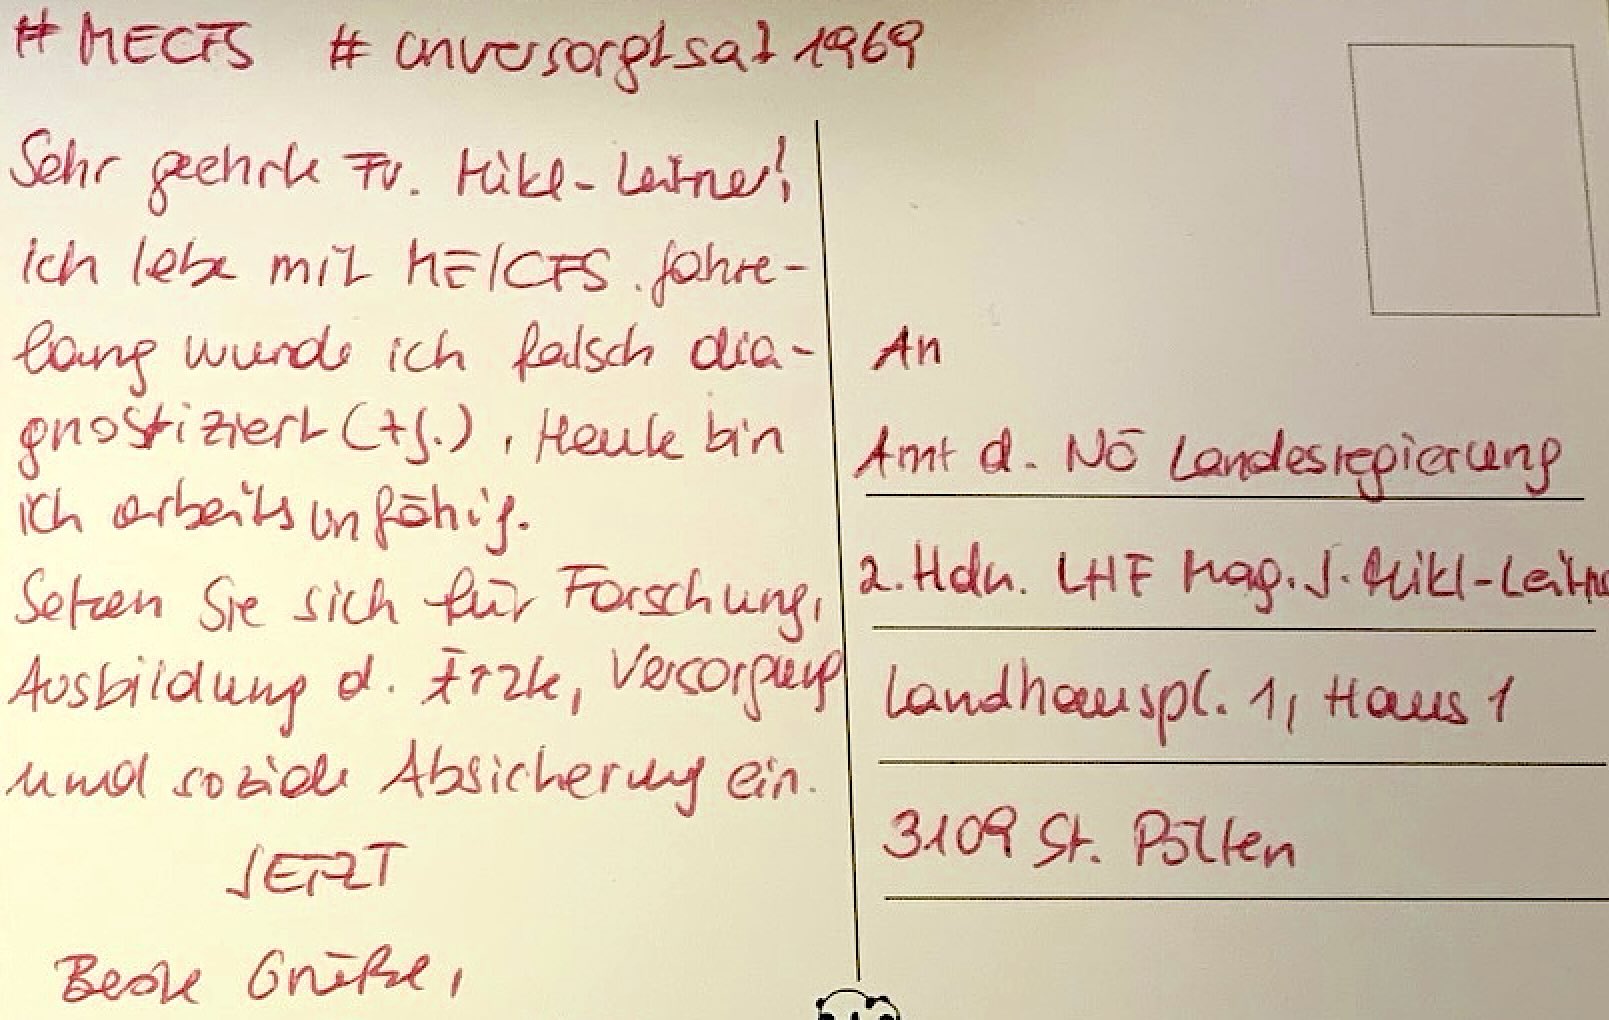 #MECFS #unversorgtsat 1969
Sehr geehrte Fr. Mikl-Leitner!
ich lebe mit ME/CFS. Jahre-
lang wurde ich falsch dia-
gnostiziert (+J.), Heute bin
ich arbeitsunfähig.
Setzen Sie sich für Forschung,
Ausbildung d. Ärzte, Versorgung
und soziale Absicherung ein.
JETZT
Beste Grüße,
An
Amt d. NÖ Landesregierung
z.Hdn. LHF Mag. J. Mikl-Leitne
Landhauspl. 1, Haus 1
3109 St. Pölten